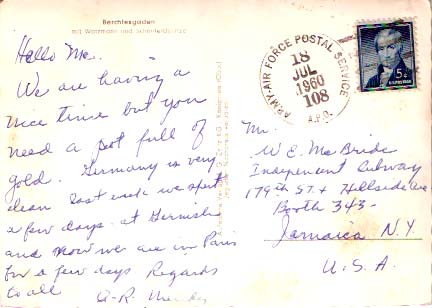 Berchtesgaden
mit Watzmann und Schönfeldspitze
Hello Mc.
We are having a
nice time but you
need a pot full of
gold. Germany is very
clean last week we spent
a few days at Garmish
and now we are in Paris
for a few days Regards
to all
A-R.
ARMY-AIR FORCE POSTAL SERVICE
18
JUL
1960
108
A.P.O.
5¢
Mr.
W E. McBride
Independent Subway
179th ST. & Hillside Ave
Booth 343-
Jamaica N.Y.
U.S.A.